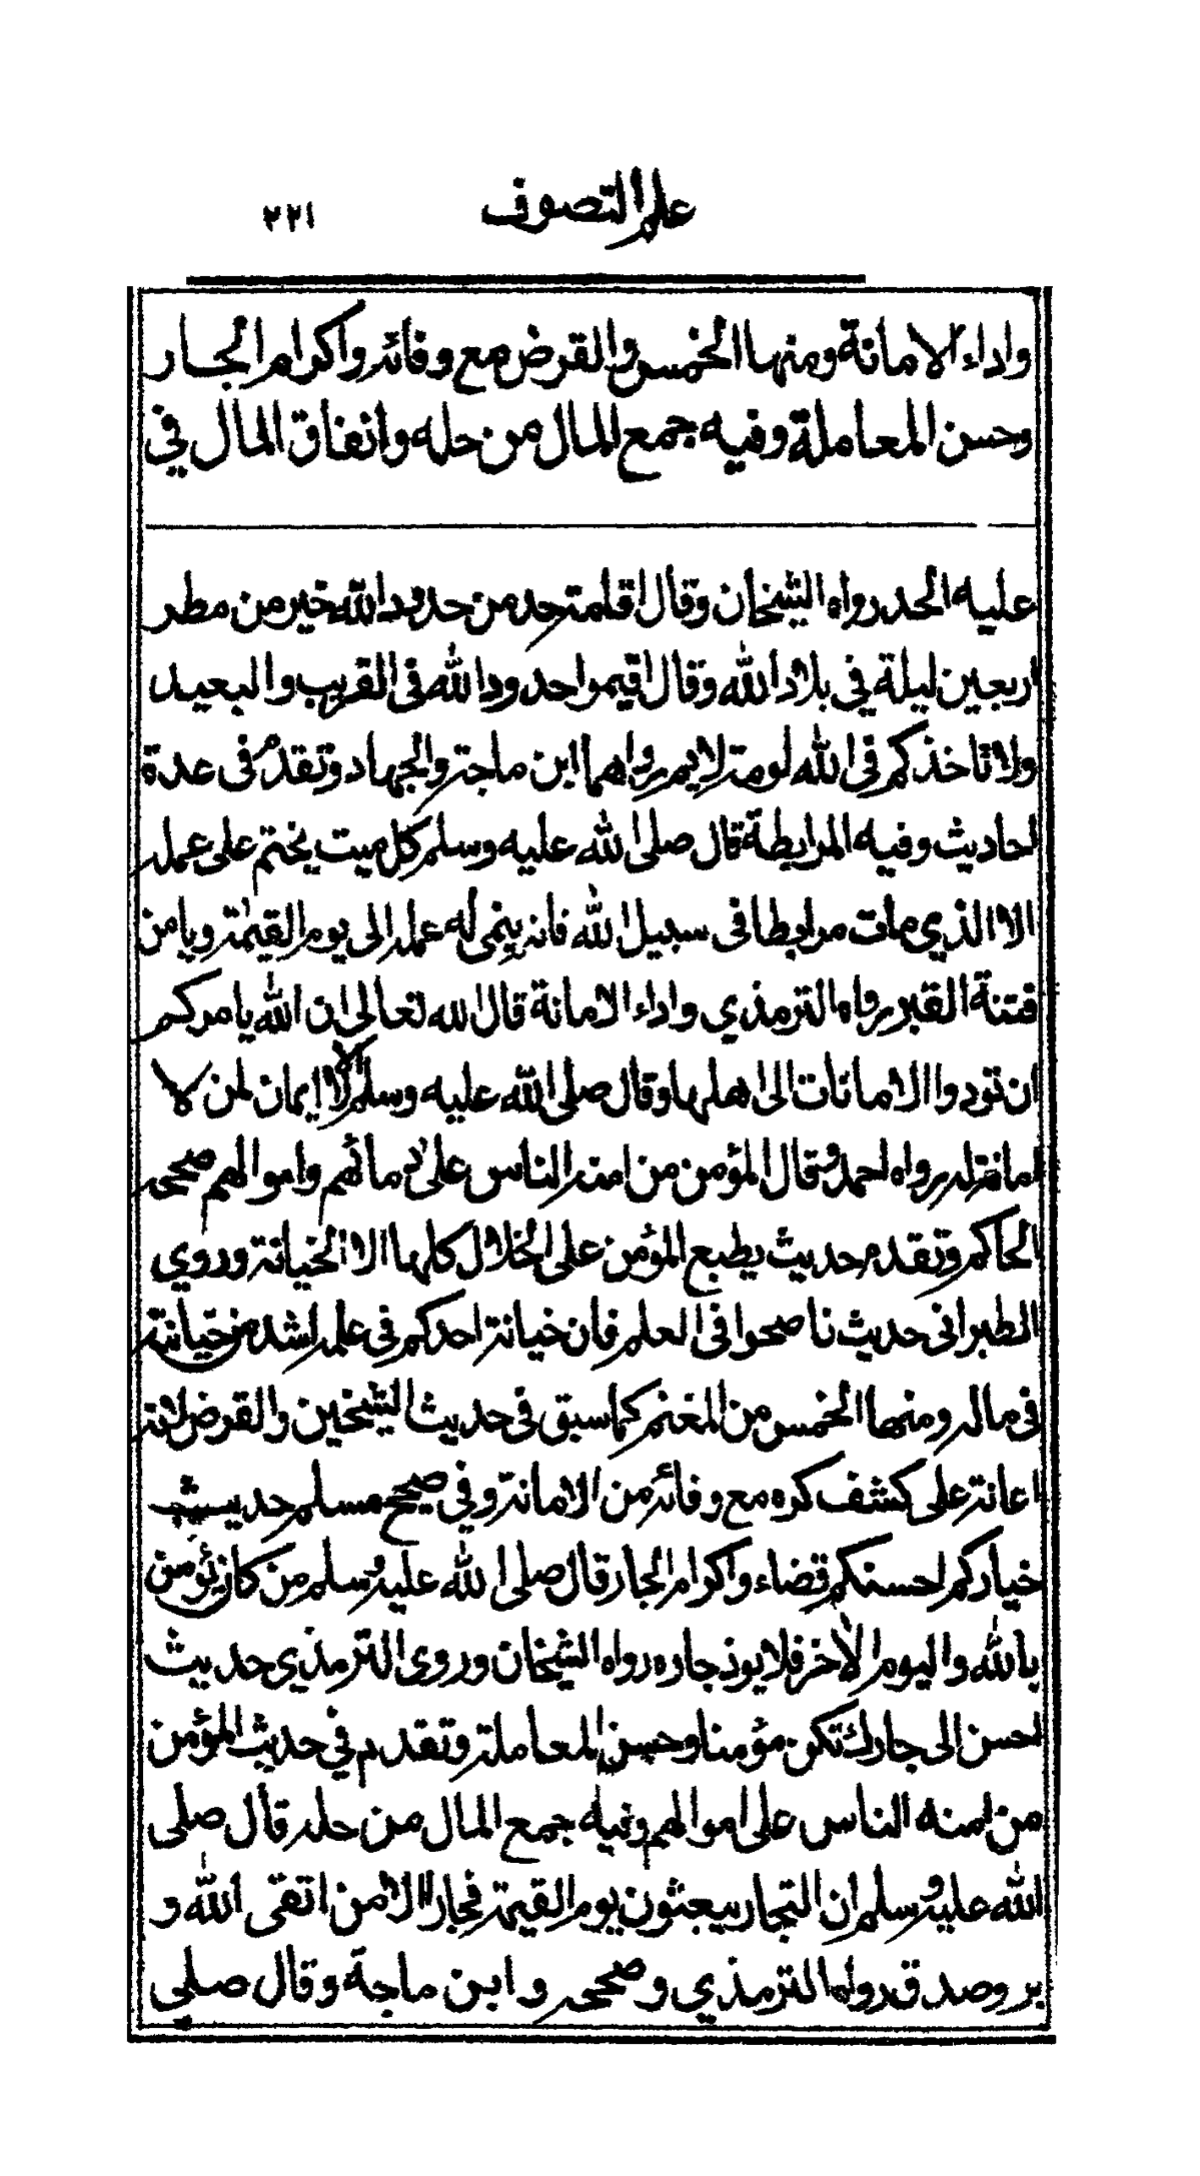 علم التصوف ٢٢١
واداء الامانة ومنها الخمس والقرض مع وفائه واكرام الجار
وحسن المعاملة وفيه جمع المال من حله وانفاق المال في
عليه الحد رواه الشيخان وقال اقامة حد من حدود الله خير من مطر
اربعين ليلة في بلاد الله وقال اقيموا حدود الله في القريب والبعيد
ولا تاخذكم في الله لومة لايم رواهما ابن ماجة والجهاد وتقدم في عدة
احاديث وفيه المرابطة قال صلى الله عليه وسلم كل ميت يختم على عمله
الا الذي مات مرابطا في سبيل الله فانه ينمى له عمله الى يوم القيمة ويامن
فتنة القبر رواه الترمذي واداء الامانة قال الله تعالى ان الله يامركم
ان تودوا الامانات الى اهلها وقال صلى الله عليه وسلم الا لا ايمان لمن لا
امانة له رواه احمد وقال المؤمن من امنه الناس على دمائهم واموالهم صححه
الحاكم وتقدم حديث يطبع المؤمن على الخلال كلها الا الخيانة وروي
الطبراني حديث ناصحوا في العلم فان خيانة احدكم في علمه اشد من خيانته
في ماله ومنها الخمس من المغنم كما سبق في حديث الشيخين والقرض لانه
اعانة على كشف كره مع وفائه من الامانة وفي صحيح مسلم حديث
خياركم احسنكم قضاء واكرام الجار قال صلى الله عليه وسلم من كان يؤمن
بالله واليوم الاخر فلا يوذ جاره رواه الشيخان وروى الترمذي حديث
احسن الى جارك تكن مؤمنا وحسن المعاملة وتقدم في حديث المؤمن
من امنه الناس على اموالهم وفيه جمع المال من حله قال صلى
الله عليه وسلم ان التجار يبعثون يوم القيمة فجارا الا من اتقى الله و
بر وصدق رواه الترمذي وصححه وابن ماجة وقال صلى